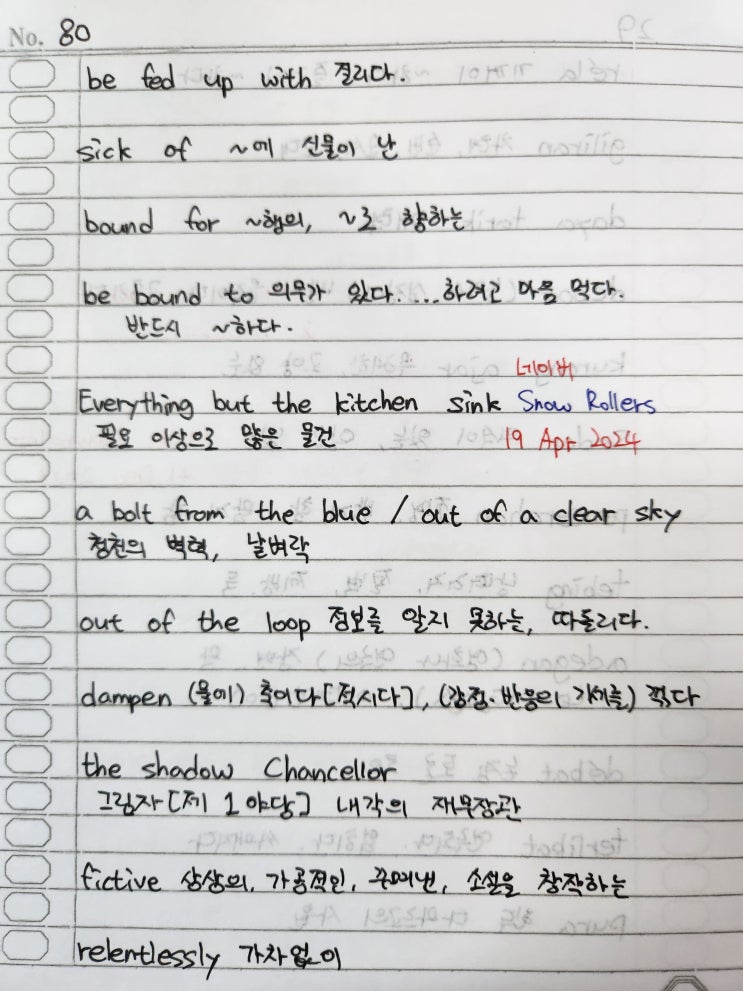 No. 80
be fed up with 질리다.
sick of ~에 신물이 난
bound for ~행의, ~로 향하는
be bound to 의무가 있다. ...하려고 마음 먹다.
반드시 ~하다.
네이버
Everything but the kitchen sink Snow Rollers
필요 이상으로 많은 물건 19 Apr 2024
a bolt from the blue / out of a clear sky
청천의 벽력, 날벼락
out of the loop 정보를 알지 못하는, 따돌리다.
dampen (물에) 축이다[적시다], (감정·반응의 기세를) 꺾다
the shadow Chancellor
그림자[제 1야당] 내각의 재무장관
fictive 상상의, 가공적인, 꾸며낸, 소설을 창작하는
relentlessly 가차없이